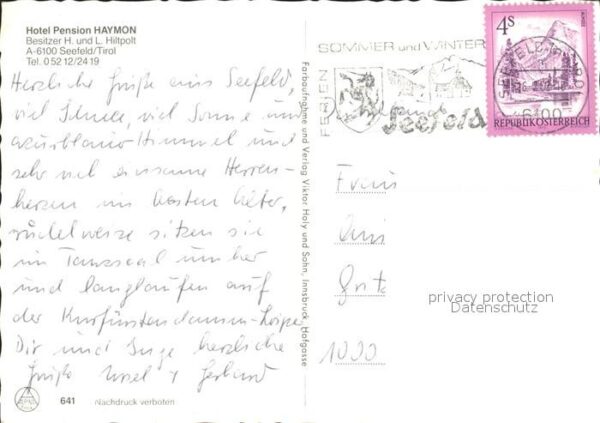 Hotel Pension HAYMON
Besitzer H. und L. Hiltpolt
A-6100 Seefeld/Tirol
Tel. 0 52 12/24 19
Herzliche Grüße aus Seefeld,
viel Schnee, viel Sonne und
azurblauer Himmel und
sehr viel einsame Herren-
herzen im besten Alter,
rudelweise sitzen sie
im Tanzsaal umher
und langlaufen auf
der Kurfürstendamm-Loipe
Dir und Inge herzliche
Grüße Ursel + Gerhard
641 Nachdruck verboten
Farbaufnahme und Verlag Viktor Holy und Sohn, Innsbruck, Hofgasse
FERIEN
SOMMER und WINTER
Seefeld
4S
REPUBLIK ÖSTERREICH
6100
Frau
1000
privacy protection
Datenschutz